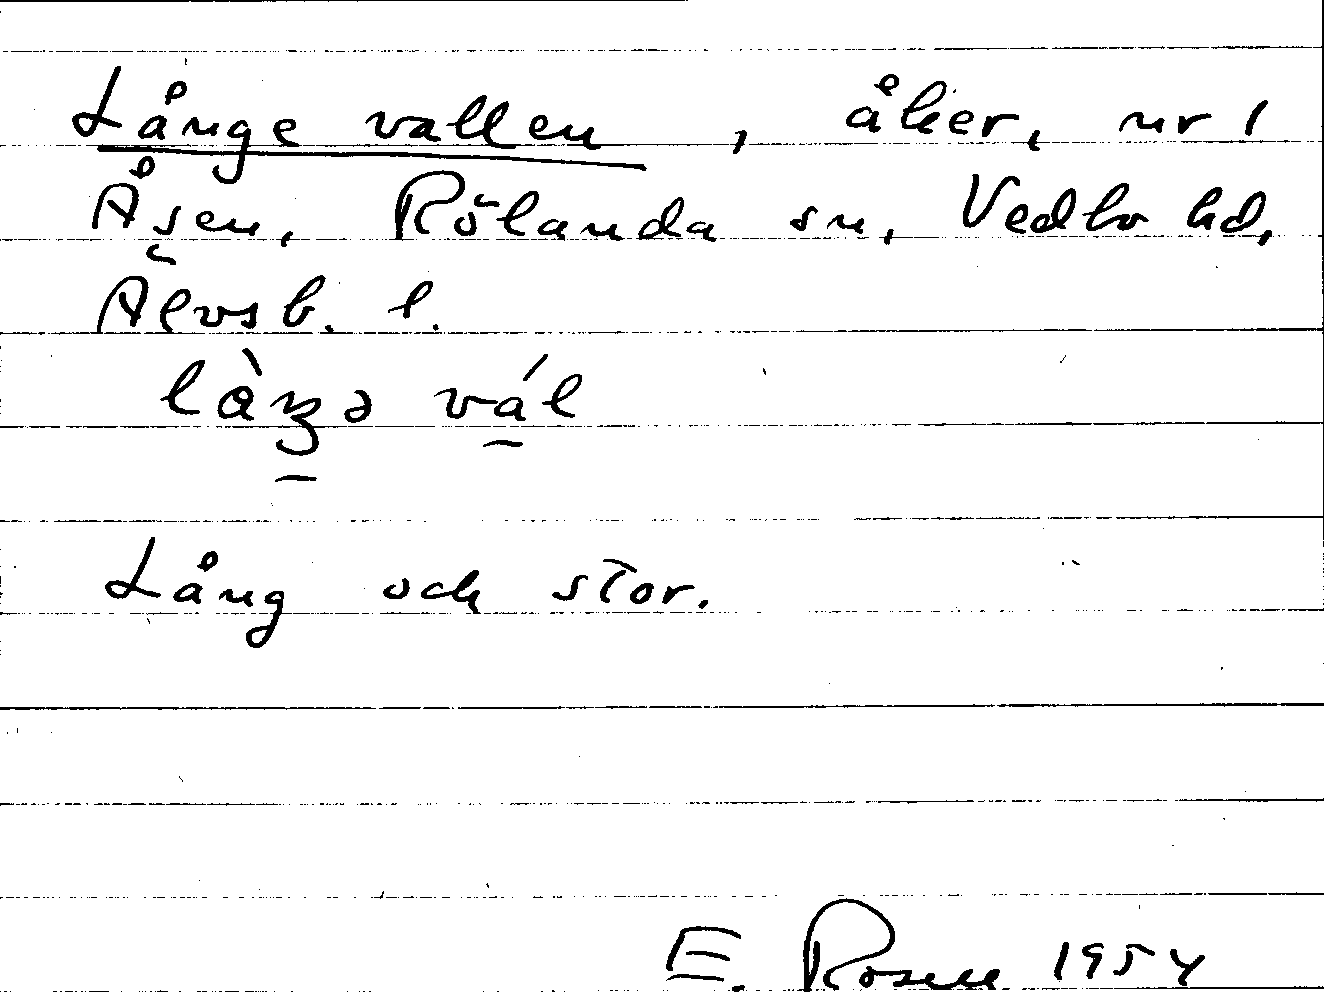 Långe vallen, åker, nr 1
Åsen, Rölanda sn, Vedbo hd,
Älvsb. l.
Lång och stor.
E. Rosen 1954